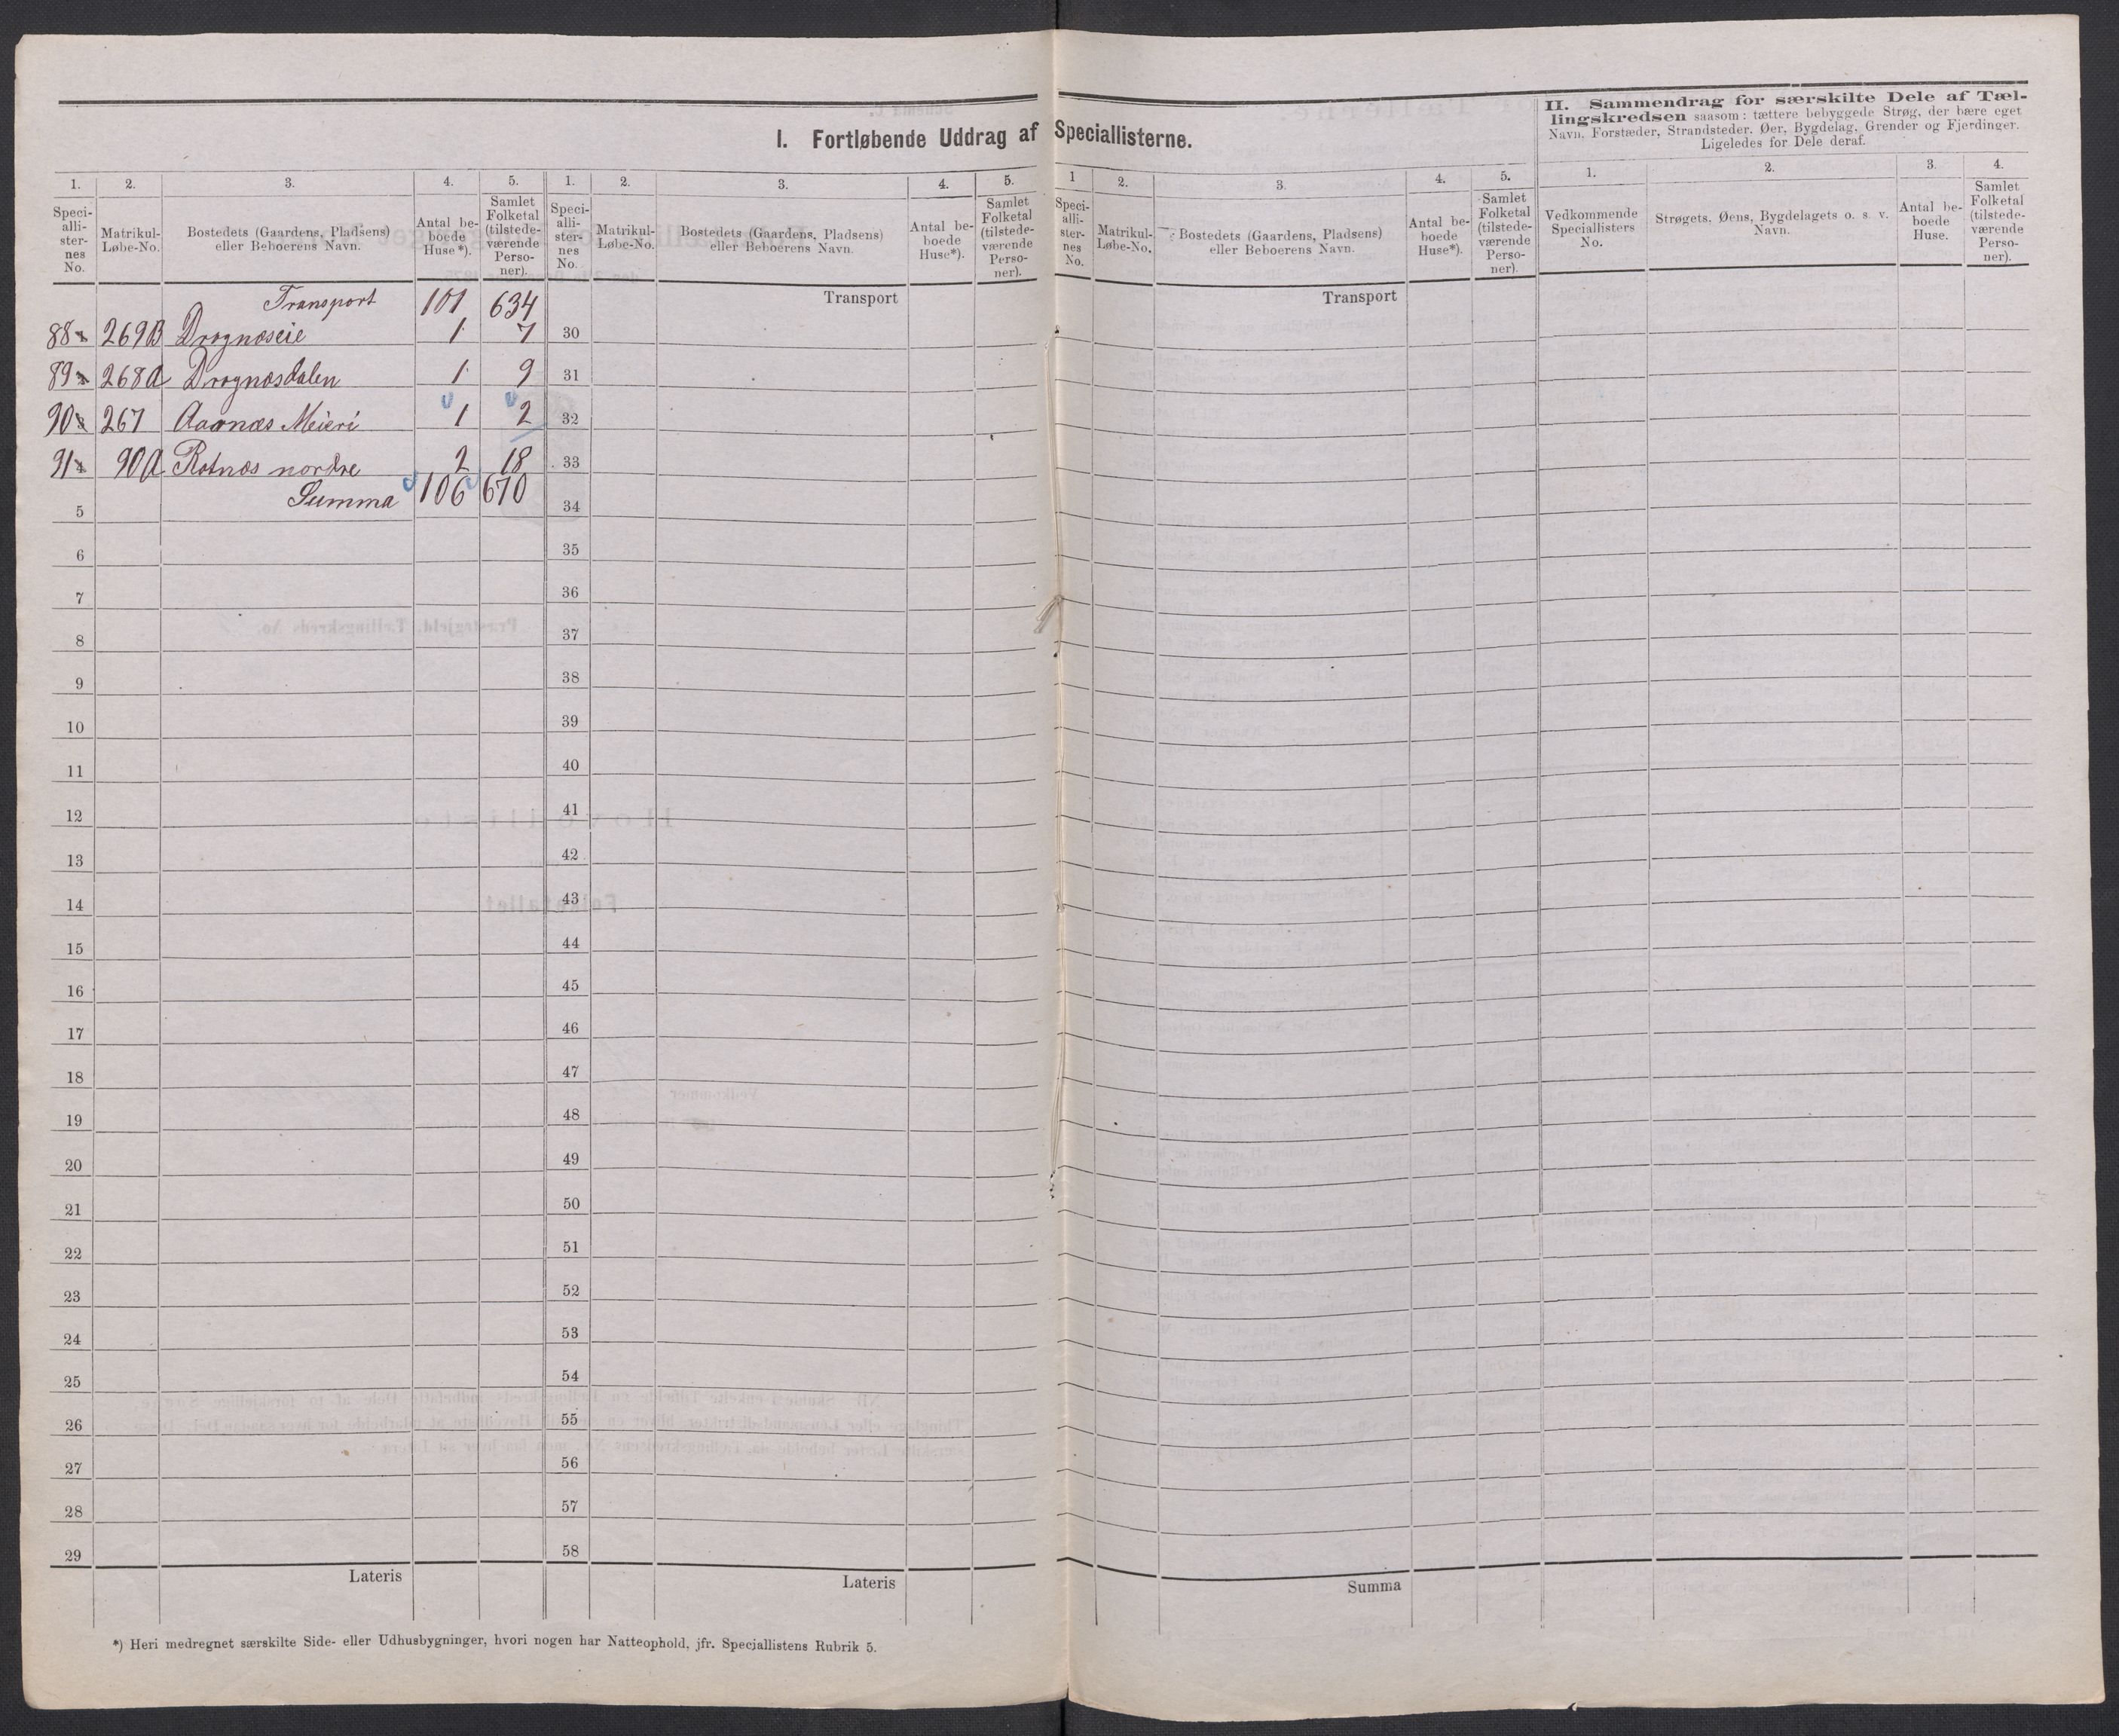 I. Fortløbende Uddrag af Speciallisterne.
II. Sammendrag for særskilte Dele af Tæl-
lingskredsen saasom: tættere bebyggede Strøg, der bære eget
Navn, Forstæder, Strandsteder, Øer, Bygdelag, Grender og Fjerdinger.
Ligeledes for Dele deraf.
1. 2. 3. 4. 5. 1. 2. 3. 4. 5. 1 2. 3. 4. 5. 1. 2. 3. 4.
Speci-
alli-
ster-
nes
No.
Matrikul-
Løbe-No.
Bostedets (Gaardens, Pladsens)
eller Beboerens Navn.
Antal be-
boede
Huse*).
Samlet
Folketal
(tilstede-
værende
Perso-
ner).
Speci-
alli-
ster-
nes
No.
Matrikul-
Løbe-No.
Bostedets (Gaardens, Pladsens)
eller Beboerens Navn.
Antal be-
boede
Huse*).
Samlet
Folketal
(tilstede-
værende
Perso-
ner).
Speci-
alli-
ster-
nes
No.
Matrikul-
Løbe-No.
Bostedets (Gaardens, Pladsens)
eller Beboerens Navn.
Antal be-
boede
Huse*).
Samlet
Folketal
(tilstede-
værende
Perso-
ner).
Vedkommende
Speciallisters
No.
Strøgets, Øens, Bygdelagets o. s. v.
Navn.
Antal be-
boede
Huse.
Samlet
Folketal
(tilstede-
værende
Perso-
ner).
Transport 101 634 Transport Transport
88 269B Drognæseie 1 7 30
89 268a Drognæsdalen 1 9 31
90 267 Aarnæs Meieri 1 2 32
91 90a Rotnæs nordre 2 18 33
Summa 106 670
5 34
6 35
7 36
8 37
9 38
10 39
11 40
12 41
13 42
14 43
15 44
16 45
17 46
18 47
19 48
20 49
21 50
22 51
23 52
24 53
25 54
26 55
27 56
28 57
29 58
Lateris Lateris Summa
*) Heri medregnet særskilte Side- eller Udhusbygninger, hvori nogen har Natteophold, jfr. Speciallistens Rubrik 5.